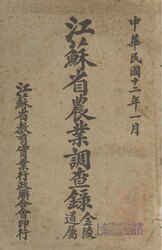 中華民國十二年一月
江蘇省農業調查錄 金陵道屬
江蘇省教育實業行政聯合會印行